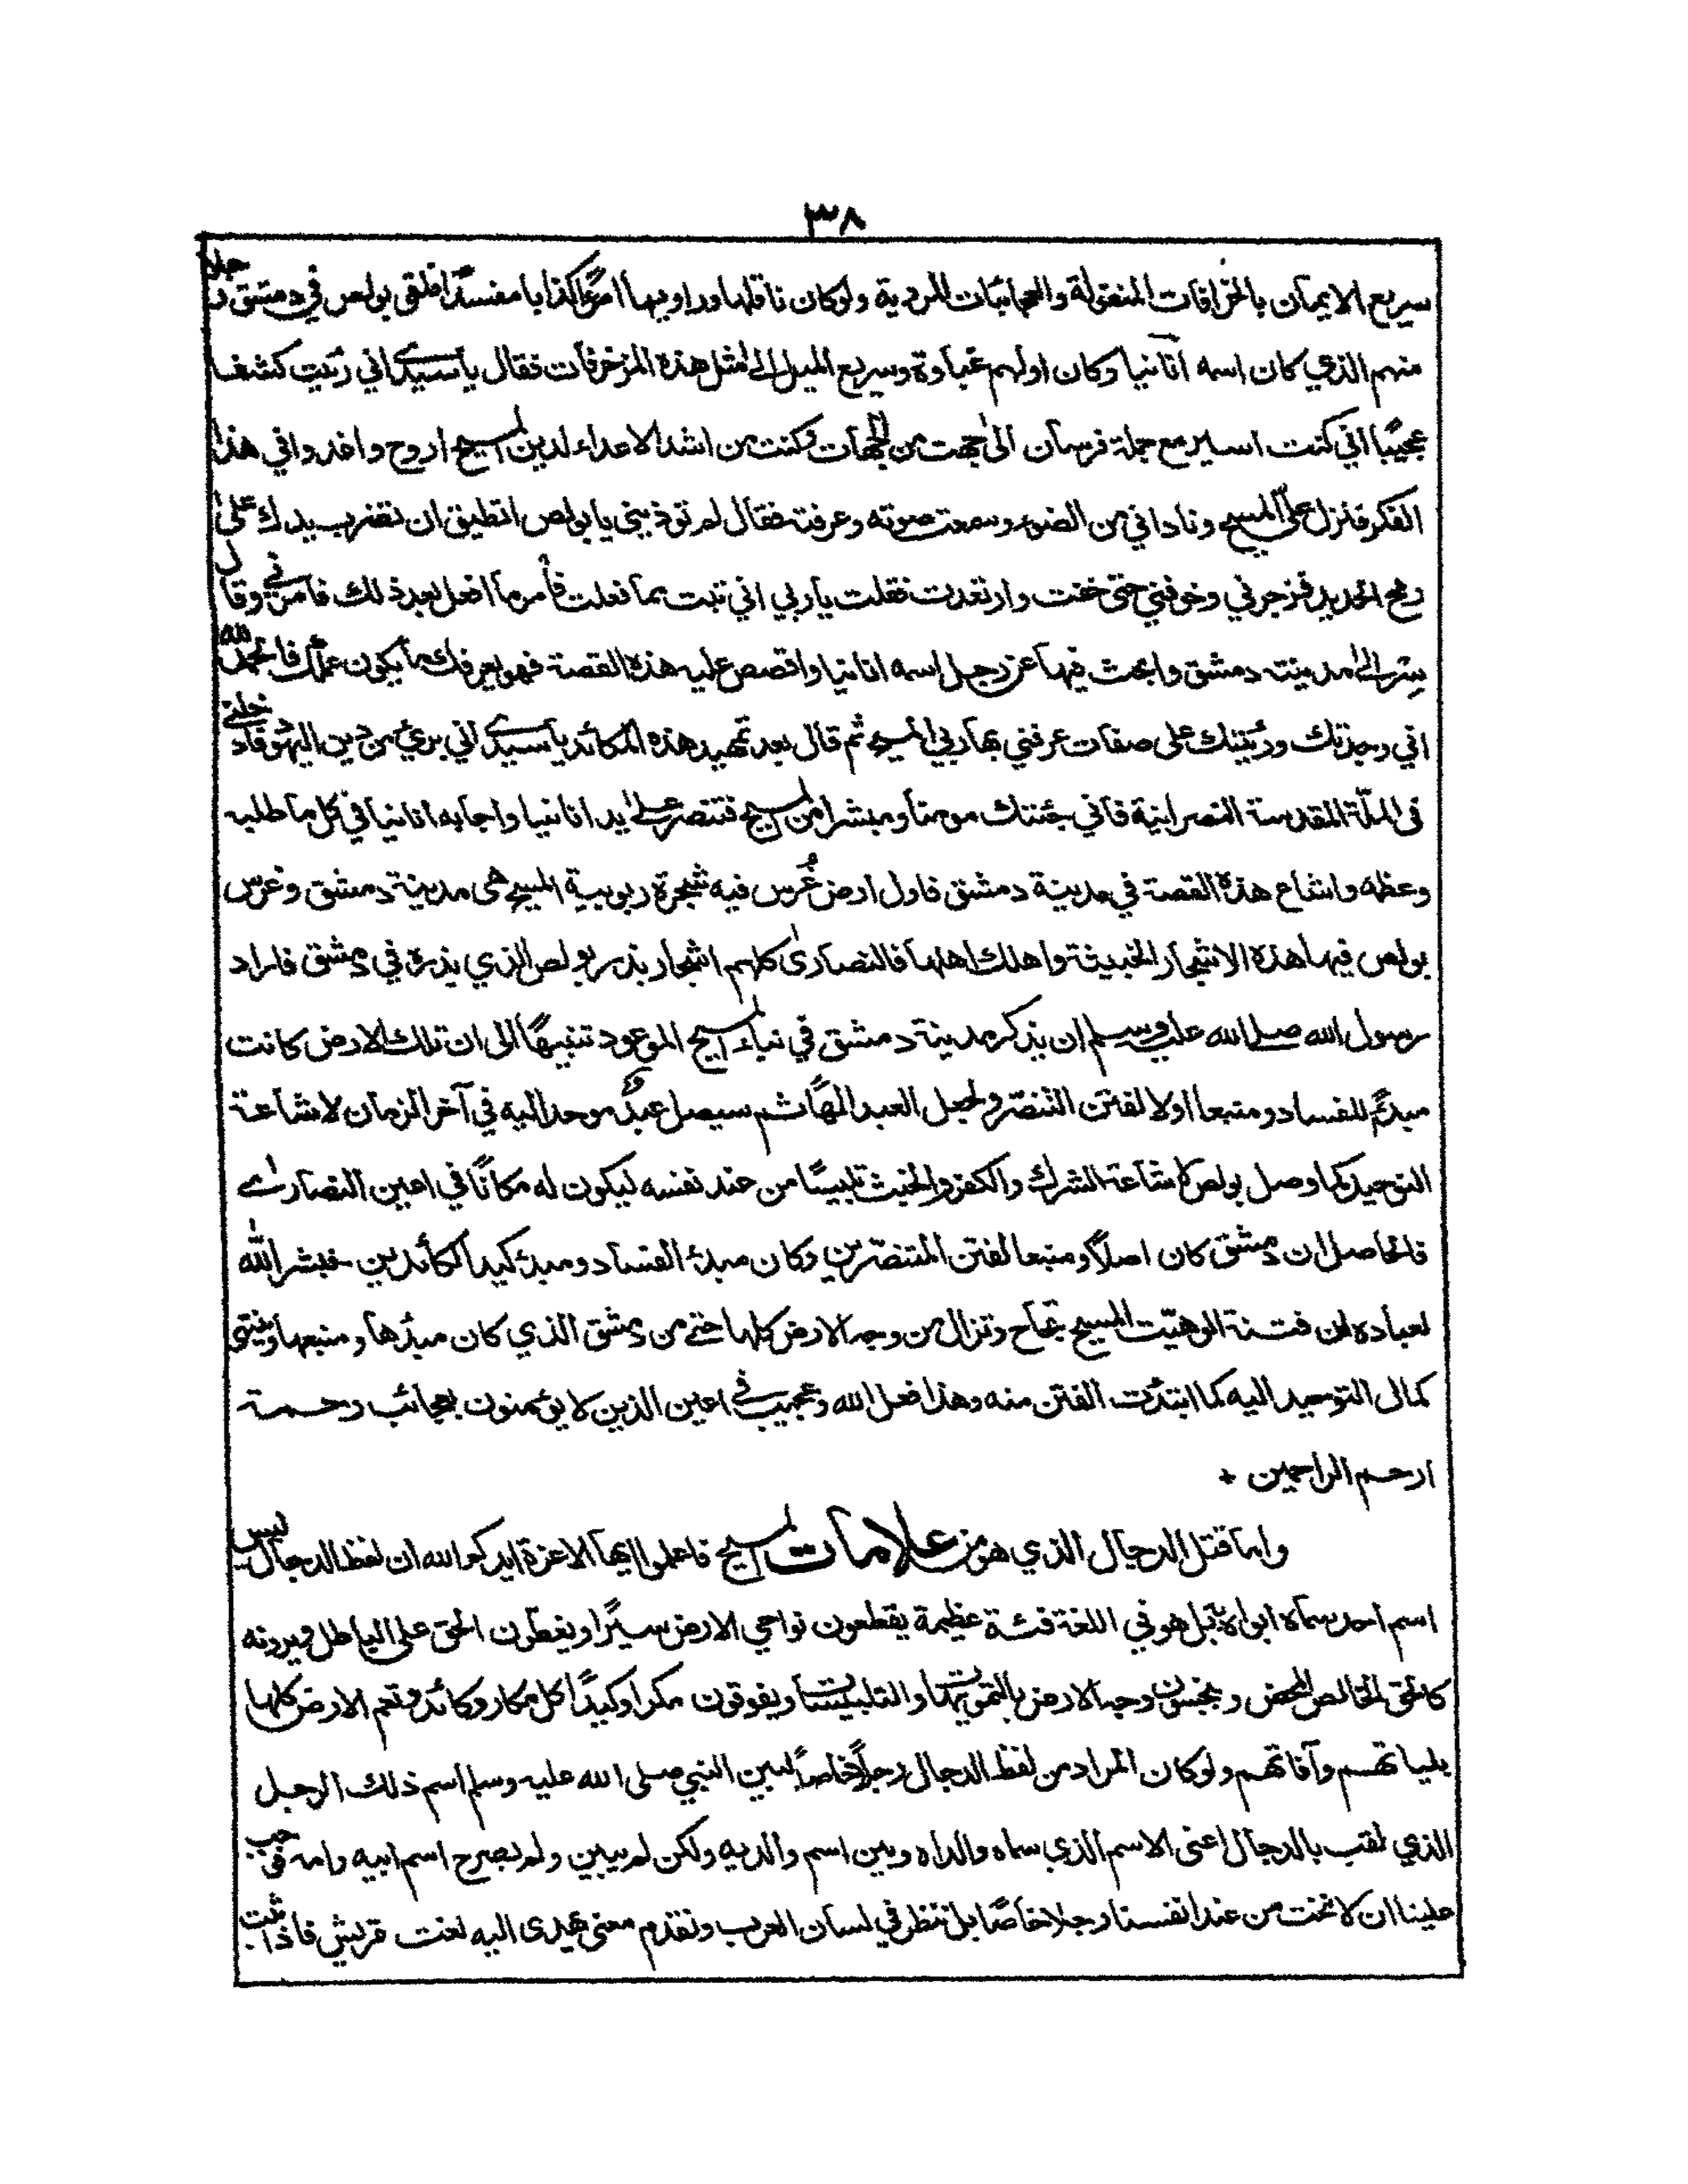 ٣٨
سريع الايمان بالخرافات المنقولة والعجائبات المروية ولوكان ناقلها وراويها امرءًا كذابا مفسدًا فلقى بولص في دمشق رجلا
منهم الذي كان اسمه انانيا وكان اولهم غباوة وسريع الميل الى مثل هذة المزخرفات فقال يا سيدى اني رئيت كشفا
عجيبًا اني كنت اسير مع جملة فرسان الى جهت من الجهات وكنت من اشد الاعداء لدين المسيح اروح واغدو افي هذا
الفكر فنزل علىّ المسيح ونادانى من الضوء وسمعت صوته وعرفته فقال لم توذيني يا بولص اتطيق ان تضرب يدك على
رمح الحديد فزجرني وخوفني حتى خفت وارتعدت فقلت يا ربي اني تبت مما فعلت فأمر ما افعل بعد ذلك فامرني وقال
سِر الى مدينته دمشق وابحث فيها عن رجل اسمه انانيا واقصص عليه هذه القصة فهو يعرفك ما يكون عملك فالحمد لله
اني وجدتك ورئيتك على صفات عرفني بها ربي المسيح ثم قال بعد تمهيد هذه المكائد يا سيدى اني برئ من دين اليهود فادخلني
فى الملّة المقدسة النصرانية فاني جئتك مومنا ومبشرا من المسيح فتنصر على يد انانيا واجابه انانيا في كل ما طلبه
وعظه واشاع هذه القصة في مدينة دمشق فاول ارض غُرس فيه شجرة ربوبية المسيح هى مدينة دمشق وغرس
بولص فيها هذة الاشجار الخبيثة واهلك اهلها فالنصارىٰ كلهم اشجار بذر بولص الذي بذرة في دمشق فاراد
رسول الله صلى الله عليه وسلم ان يذكر مدينة دمشق في نباء المسيح الموعود تنبيهًا الى ان تلك الارض كانت
مبدءً للفساد ومنبعا اولا لفتن التنصر ولجعل العبد الهًا ثم سيصل عبدٌ موحد اليه في آخر الزمان لاشاعة
التوحيد كما وصل بولص لاشاعة الشرك والكفر والخبث تلبيسًا من عند نفسه ليكون له مكانًا في اعين النصارىٰ
فالحاصل ان دمشق كان اصلاً ومنبعا لفتن المتنصّرين وكان مبدء الفساد ومبدء كيد الكائدين ۔ فبشر الله
لعباده ان فتنة الوهيّت المسيح تجاح وتزال من وجه الارض كلها حتى من دمشق الذي كان مبدءها ومنبعها وينتهى
كمالى التوحيد اليه كما ابتدئت الفتن منه وهذا فعل الله وعجيب في اعين الذين لا يؤمنون بعجائب رحمة
ارحم الراحمين +
واما قتل الدجال الذي هو من علامات المسيح فاعلموا ايها الاعزة ايدكم الله ان لفظ الدجال ليس
اسم احد سماه ابواه بل هو في اللغة فئة عظيمة يقطعون نواحي الارض سيرًا ويغطّون الحق على الباطل ويرونه
كالحق الخالص المحض وينجسون وجه الارض بالتمويهات والتلبيسات ويفوقون مكرا وكيدًا كل مكار وكائد وتعم الارض كلها
بلياتهم وآفاتهم ولوكان المراد من لفظ الدجال رجلاً خاصاً لبين النبي صلى الله عليه وسلم اسم ذلك الرجل
الذي لقب بالدجال اعنى الاسم الذي سماه والداه وبين اسم والديه ولكن لم يبين ولم يصرح اسم ابيه وامه فوجب
علينا ان لا ننحت من عند انفسنا رجلا خاصًا بل ننظر في لسان العرب ونقدم معنى يهدى اليه لغت قريش فاذا ثبت